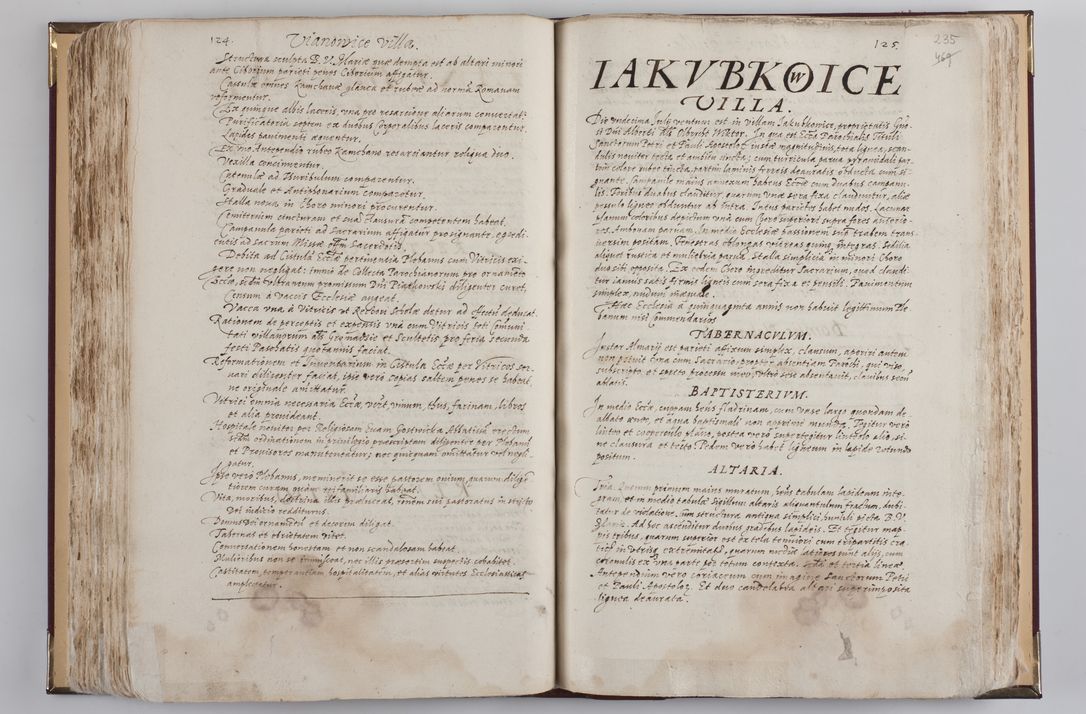 124. Vianowice Villa.
Structura sculpta B. V. Mariæ quæ dempta est ab altari minori
ante Ciborium parieti penes Ciborium affigatur.
Casulæ omnes Kamchanæ glauca et rubræ ad normã Romanam
reformentur.
Ex quinque albis laceris, una pro resarciõe aliarum convertat:
Purificatoria septem ex duobus Corporalibus laceris comparentur.
Lapides pavimenti æquentur.
Ex uno Antependio rubeo Kamchano resarciantur reliqua duo.
Vexilla concinnentur.
Catenulæ ad Thuribulum comparentur.
Graduale et Antiphonarium comparetur.
Stalla nova in Choro minori procurentur.
Cemiterium cincturam et suã clausurã competentem habeat.
Campanula parieti ad Sacrarium affigatur pro signante, egredi-
entis ad sacrum Missæ offm Sacerdotis.
Debita ad Cistulã Ecclæ pertinentia Plebanus cum Vitricis exi-
gere non negligat: imò de Collecta Parochianorum pro ornamẽto
Ecclæ, scdm ultroneum promissum Dñi Piątkowski diligenter curet.
Censum à Vaccis Ecclesiæ augeat.
Vacca una à Vitricis ut Rectori Scholæ detur ad effectũ deducat.
Rationem de perceptis et expensis unà cum Vitricis toti Comuni
tati villanorum als Gromadsie et Scultetis pro feria secunda
festi Paschatis quotannis faciat.
Reformationem et Inventarium in Cistula Ecclæ per Vitricos ser-
vari diligenter faciat, ipse verò copias saltem penes se habeat,
ne originale amittatur.
Vitrici omnia necessaria Ecclæ, videt vinum, thus, farinam, libros
et alia provideant.
Hospitale noviter per Religiosam Evam Gostwicka Abbatissã erectum
ordinationem in privilegio præscriptam diligenter per Plebanũ
et Provisores manuteneatur; nec quicquam omittatur vel negli-
gatur.
Ipse verò Plebanus, meminerit se esse pastorem ovium, quarum diligẽ
tiorem curam quàm rei familiaris habeat.
Vita, moribus, doctrina illis præluceat, rõnem sui pastoratus in stricto
Dei iudicio redditurus.
Domus Dei ornamẽtũ et decorem diligat.
Tabernas et ebrietatem vitet.
Conversationem honestam et non scandalosam habeat.
Mulieribus non se immisceat, nec illis præsertim suspectis cohabitet.
Castitatem, temperantiam, hospitalitatem, et alias virtutes Ecclesiasticas
amplectatur.
125. 235
469
IAKVBKOWICE
VILLA.
Die undecima Julij ventum est in villam Jakubkowice, proprietatis Gño-
si Dñi Alberti
In qua est Ecclã Parochialis Tituli
Sanctorum Petri et Pauli Apostoloꝝ iustæ magnitudinis, tota lignea, scan-
dulis noviter tecta et
cum turricula parva pyramidali par-
tim colore rubeo tincta, partim laminis ferreis deauratis obducta cum si-
gnante. Campanile maius annexum habens Ecclæ cum duabus campanu-
lis. Foribus duabus clauditur, quarum unæ sera fixa clauduntur, aliæ
pesulo ligneo obduntur ab intra. Intus parietes habet nudos. Lacunar
planum coloribus depictum unà cum Choro superiori supra fores anterio-
res. Ambonam parvam. In medio Ecclesiæ passionem sup trabem trans
versim positam. Fenestras oblongas vitreas quinq integras. Sedilia
aliqua rustica et muliebria parva. Stalla simplicia in minori Choro
duo sibi opposita. Ex eodem Choro ingreditur Sacrarium, quod claudi-
tur ianuis satis firmis ligneis cum sera fixa et pensili. Pavimentum
simplex, nudum inæquale.
Hæc Ecclesia à quinquaginta annis non habuit legittimum Ple-
banum nisi Commendarios
TABERNACVLVM.
Instar Almarij est parieti affixum simplex, clausum, aperiri autem
non potuit una cum Sacrario, propter absentiam Parochi, qui viso,
subscripto et spreto processu meo, ultrò sese absentavit, clavibus secũ
ablatis.
BAPTISTERIVM.
In medio Ecclæ, cuppam hẽns fladrinam, cum vase largo quondam de-
albato æneo, et aqua baptismali non apparere munda. Tegitur verò
linteo et cooperculo plano, postea verò supertegitur linteolo alio, si-
ne clausura et tecto. Pedem verò habet ligneum in lapide rotundo
positum.
ALTARIA.
Tria. Quorum primum maius muratum, hẽns tabulam lapideam inte-
gram, et in medio tabulæ sigillum altaris aliquantulum fractum, dubi-
tatur de violatione. cum structura antiqua simplici, humili picta B. V.
Mariæ. Ad hoc ascenditur duobus gradibus lapideis. Et tegitur map-
pis tribus, quarum superior est ex tela tenuiori cum tripartitis cra
tici in utraq extremitate, quarum mediæ latiores sunt alijs, cum
cæruleis ex una parte per totum contexta. Scda et tertia lineæ.
Antependium verò coriaceum cum imagine Sanctorum Petri
et Pauli Apostoloꝝ. Et duo candelabra altari superimposita
lignea deaurata.